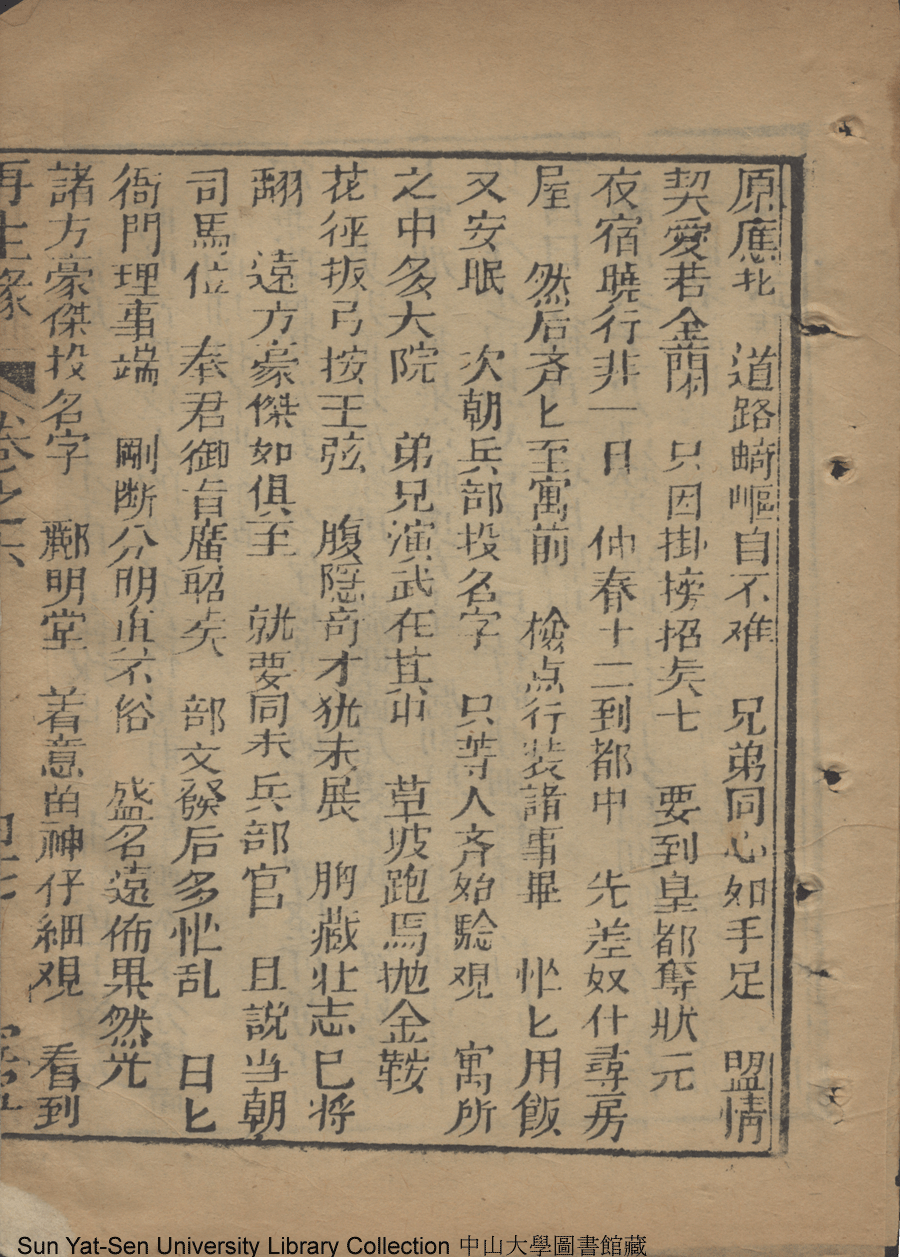 原應北　道路崎嶇自不难　兄弟同心如手足　盟情
契愛若金蘭　只因掛搒招矣七　要到皇都奪狀元
夜宿曉行非一日　仲春十二到都中　先差奴什尋房
屋　然后斉匕至寓前　檢点行裝諸事畢　忙匕用飯
又安眠　次朝兵部投名字　只等人斉始騐观　寓所
之中多大院　弟兄演武在其中　草坡跑馬抛金鞍
花徑扳弓按王弦　腹隠奇才犹未展　胸藏壮志已将
翻　遠方豪傑如俱至　就要同未兵部官　且説当朝
司馬位　奉君御旨廣招矣　部文發后多忙乱　日匕
衙門理事端　剛断分明真不俗　盛名遠佈果然光
諸方豪傑投名字　酈明堂　着意的神仔細观　看到
再生緣　卷之六
Sun Yat-Sen University Library Collection 中山大學圖書館藏